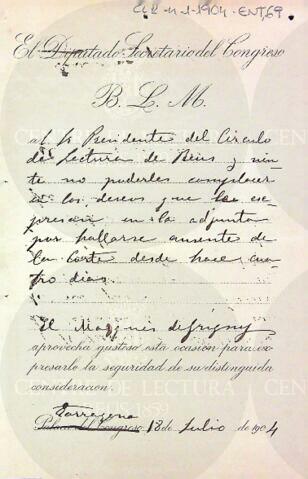 CLR-11-1-1904-ENT,69
El Diputado Secretario del Congreso
B. L. M.
al Sr Presidente del Círculo
de Lectura de Reus y sien-
te no poderles complacer
en los deseos que le ex-
presan en la adjunta
por hallarse ausente de
la Corte desde hace cua-
tro dias.
El Marqués de Grigny
aprovecha gustoso esta ocasión para ex-
presarle la seguridad de su distinguida
consideración.
Tarragona
Palacio del Congreso 18 de Julio de 1904